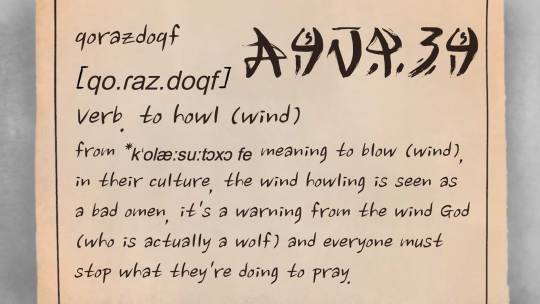 qorazdoqf
[qo.raz.doqf]
Verb. to howl (wind)
from *k'olæ:su:tɔxɔ fe meaning to blow (wind),
in their culture, the wind howling is seen as
a bad omen, it's a warning from the wind God
(who is actually a wolf) and everyone must
stop what they're doing to pray.